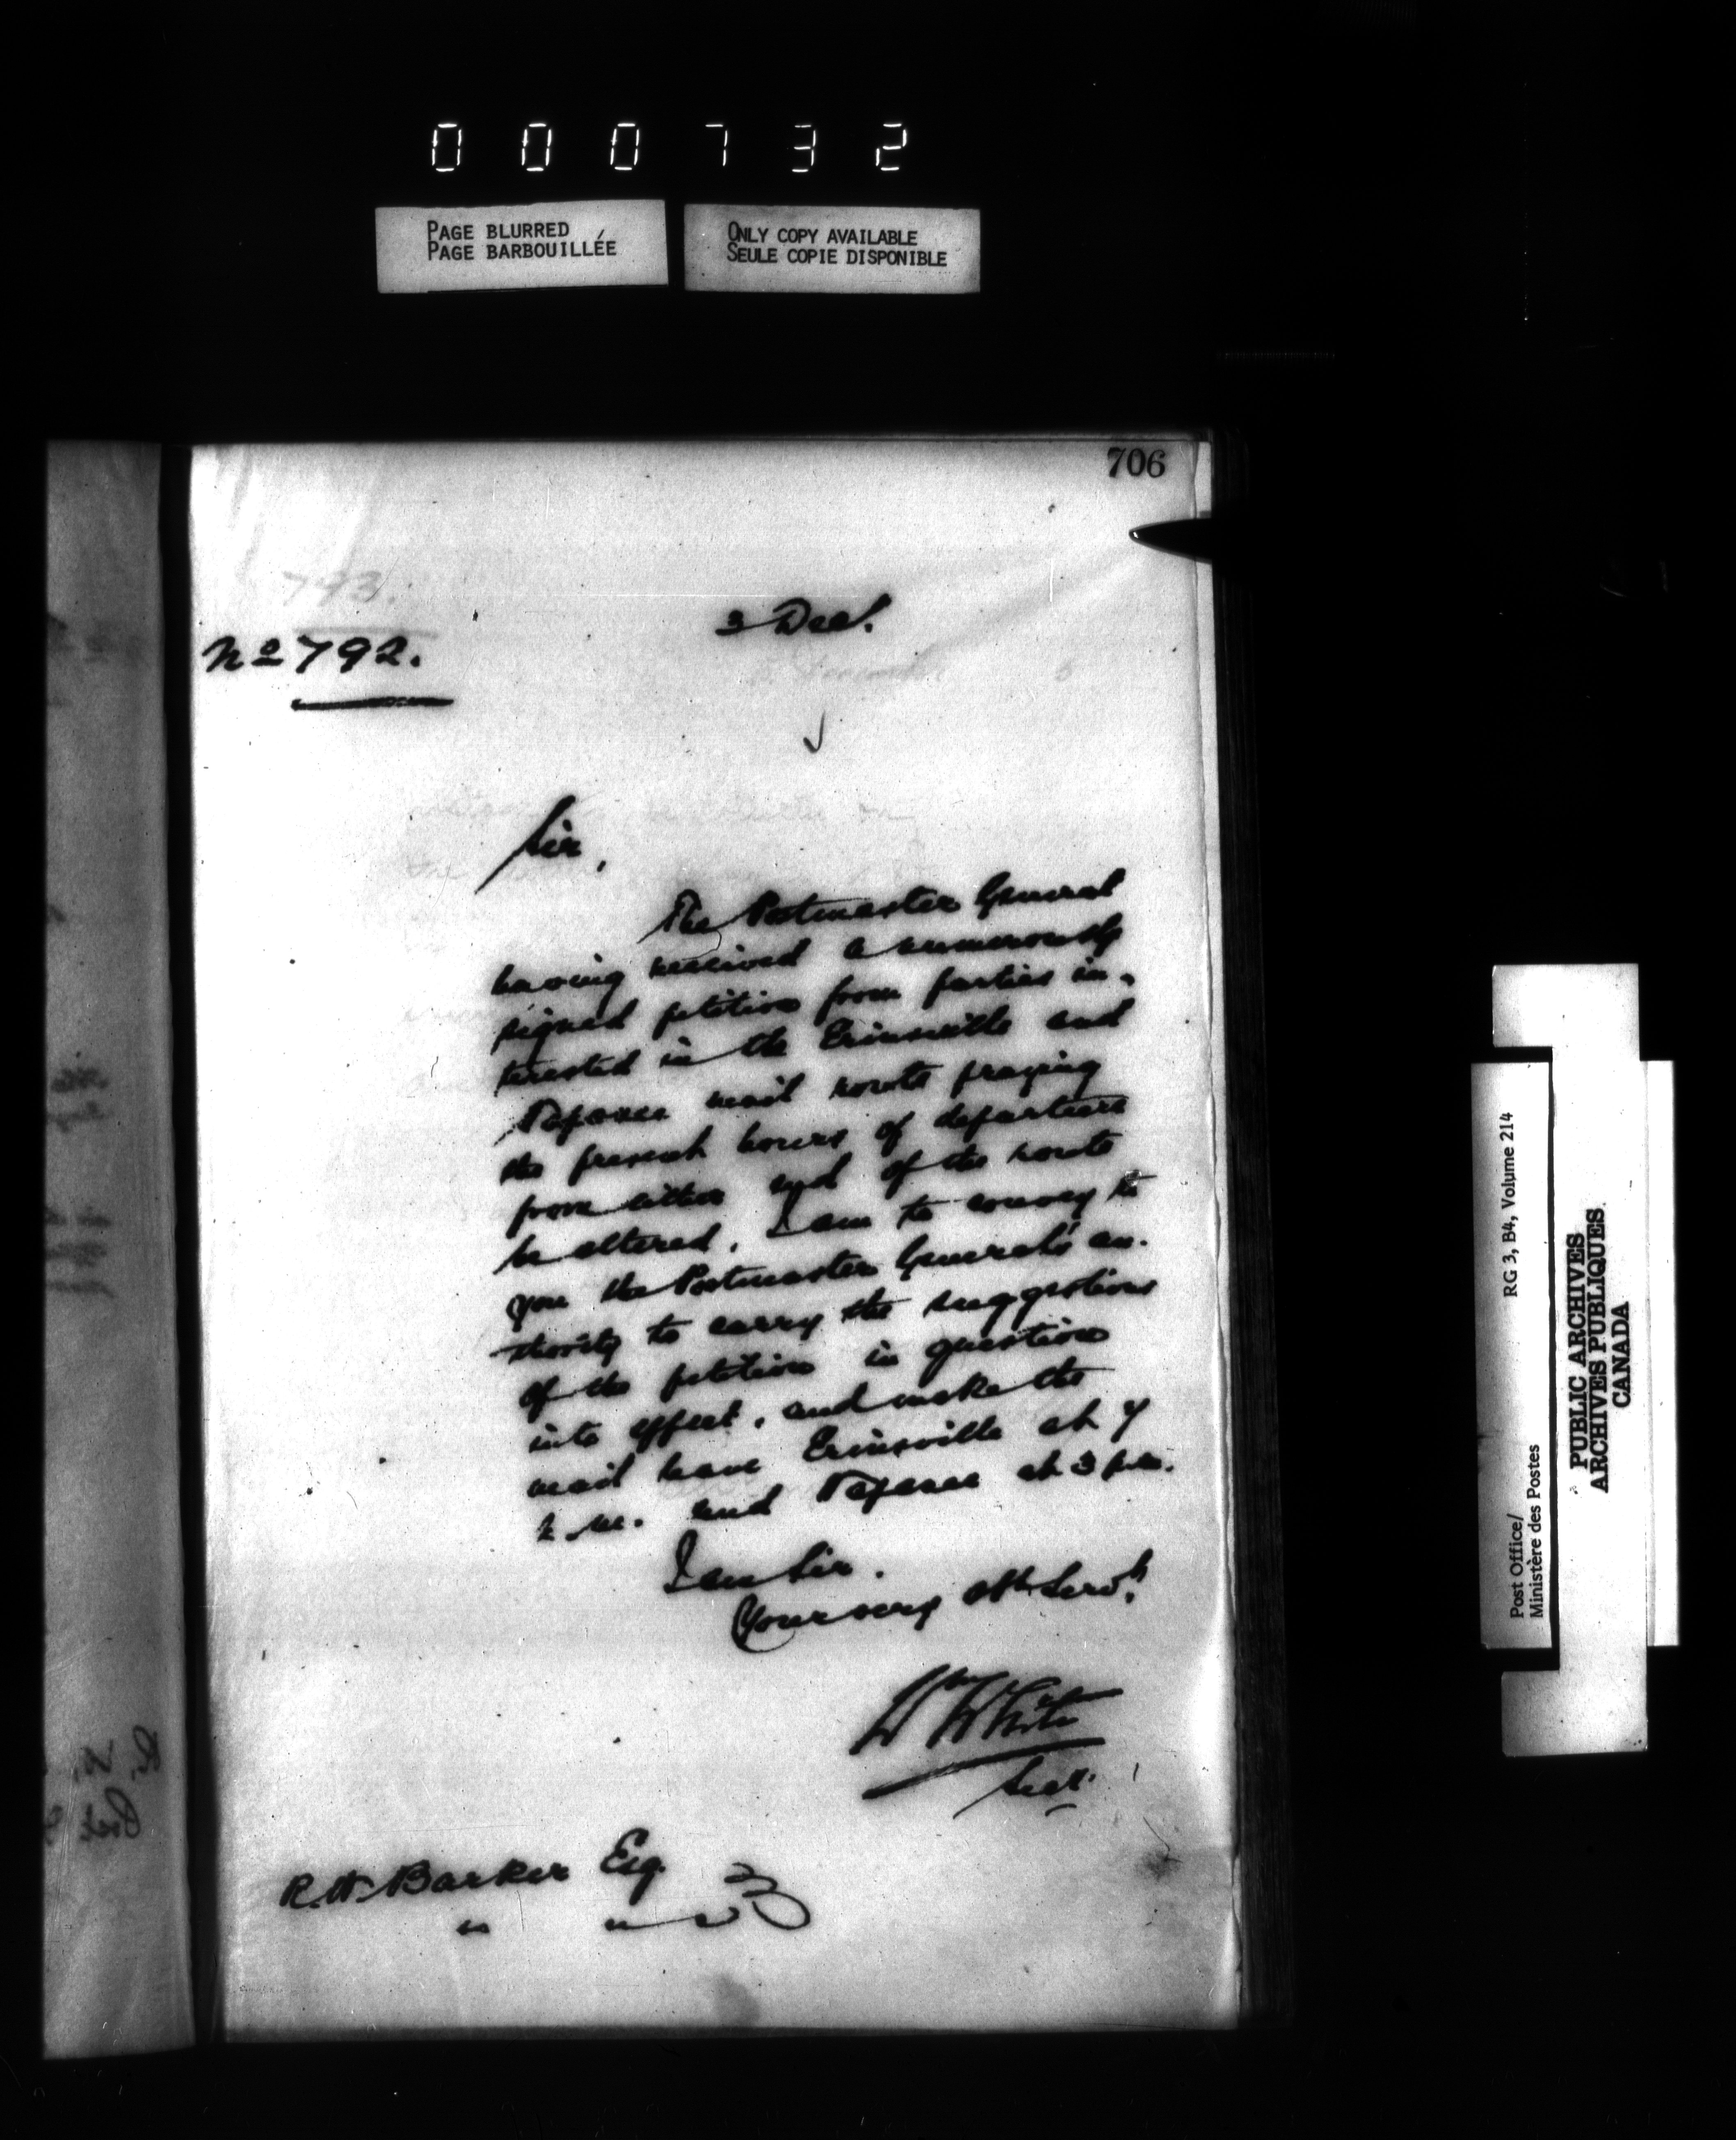 000732
PAGE BLURRED
PAGE BARBOUILLÉE
ONLY COPY AVAILABLE
SEULE COPIE DISPONIBLE
706
793.
3 Dec.
No 792.
Sir,
The Postmaster General
having received a numerously
signed petition from parties in-
terested in the Erinsville and
Napanee mail route praying
the present hours of departure
from either end of the route
be altered, I am to convey to
you the Postmaster General's au-
thority to carry the suggestions
of the petition in question
into effect, and make the
mail leave Erinsville at 7
a.m. and Napanee at 3 p.m.
I am Sir.
Your very obt. Servt.
Wm White
Secy.
R.W. Barker Esq.
Post Office/
Ministère des Postes
RG 3, B4, Volume 214
PUBLIC ARCHIVES
ARCHIVES PUBLIQUES
CANADA